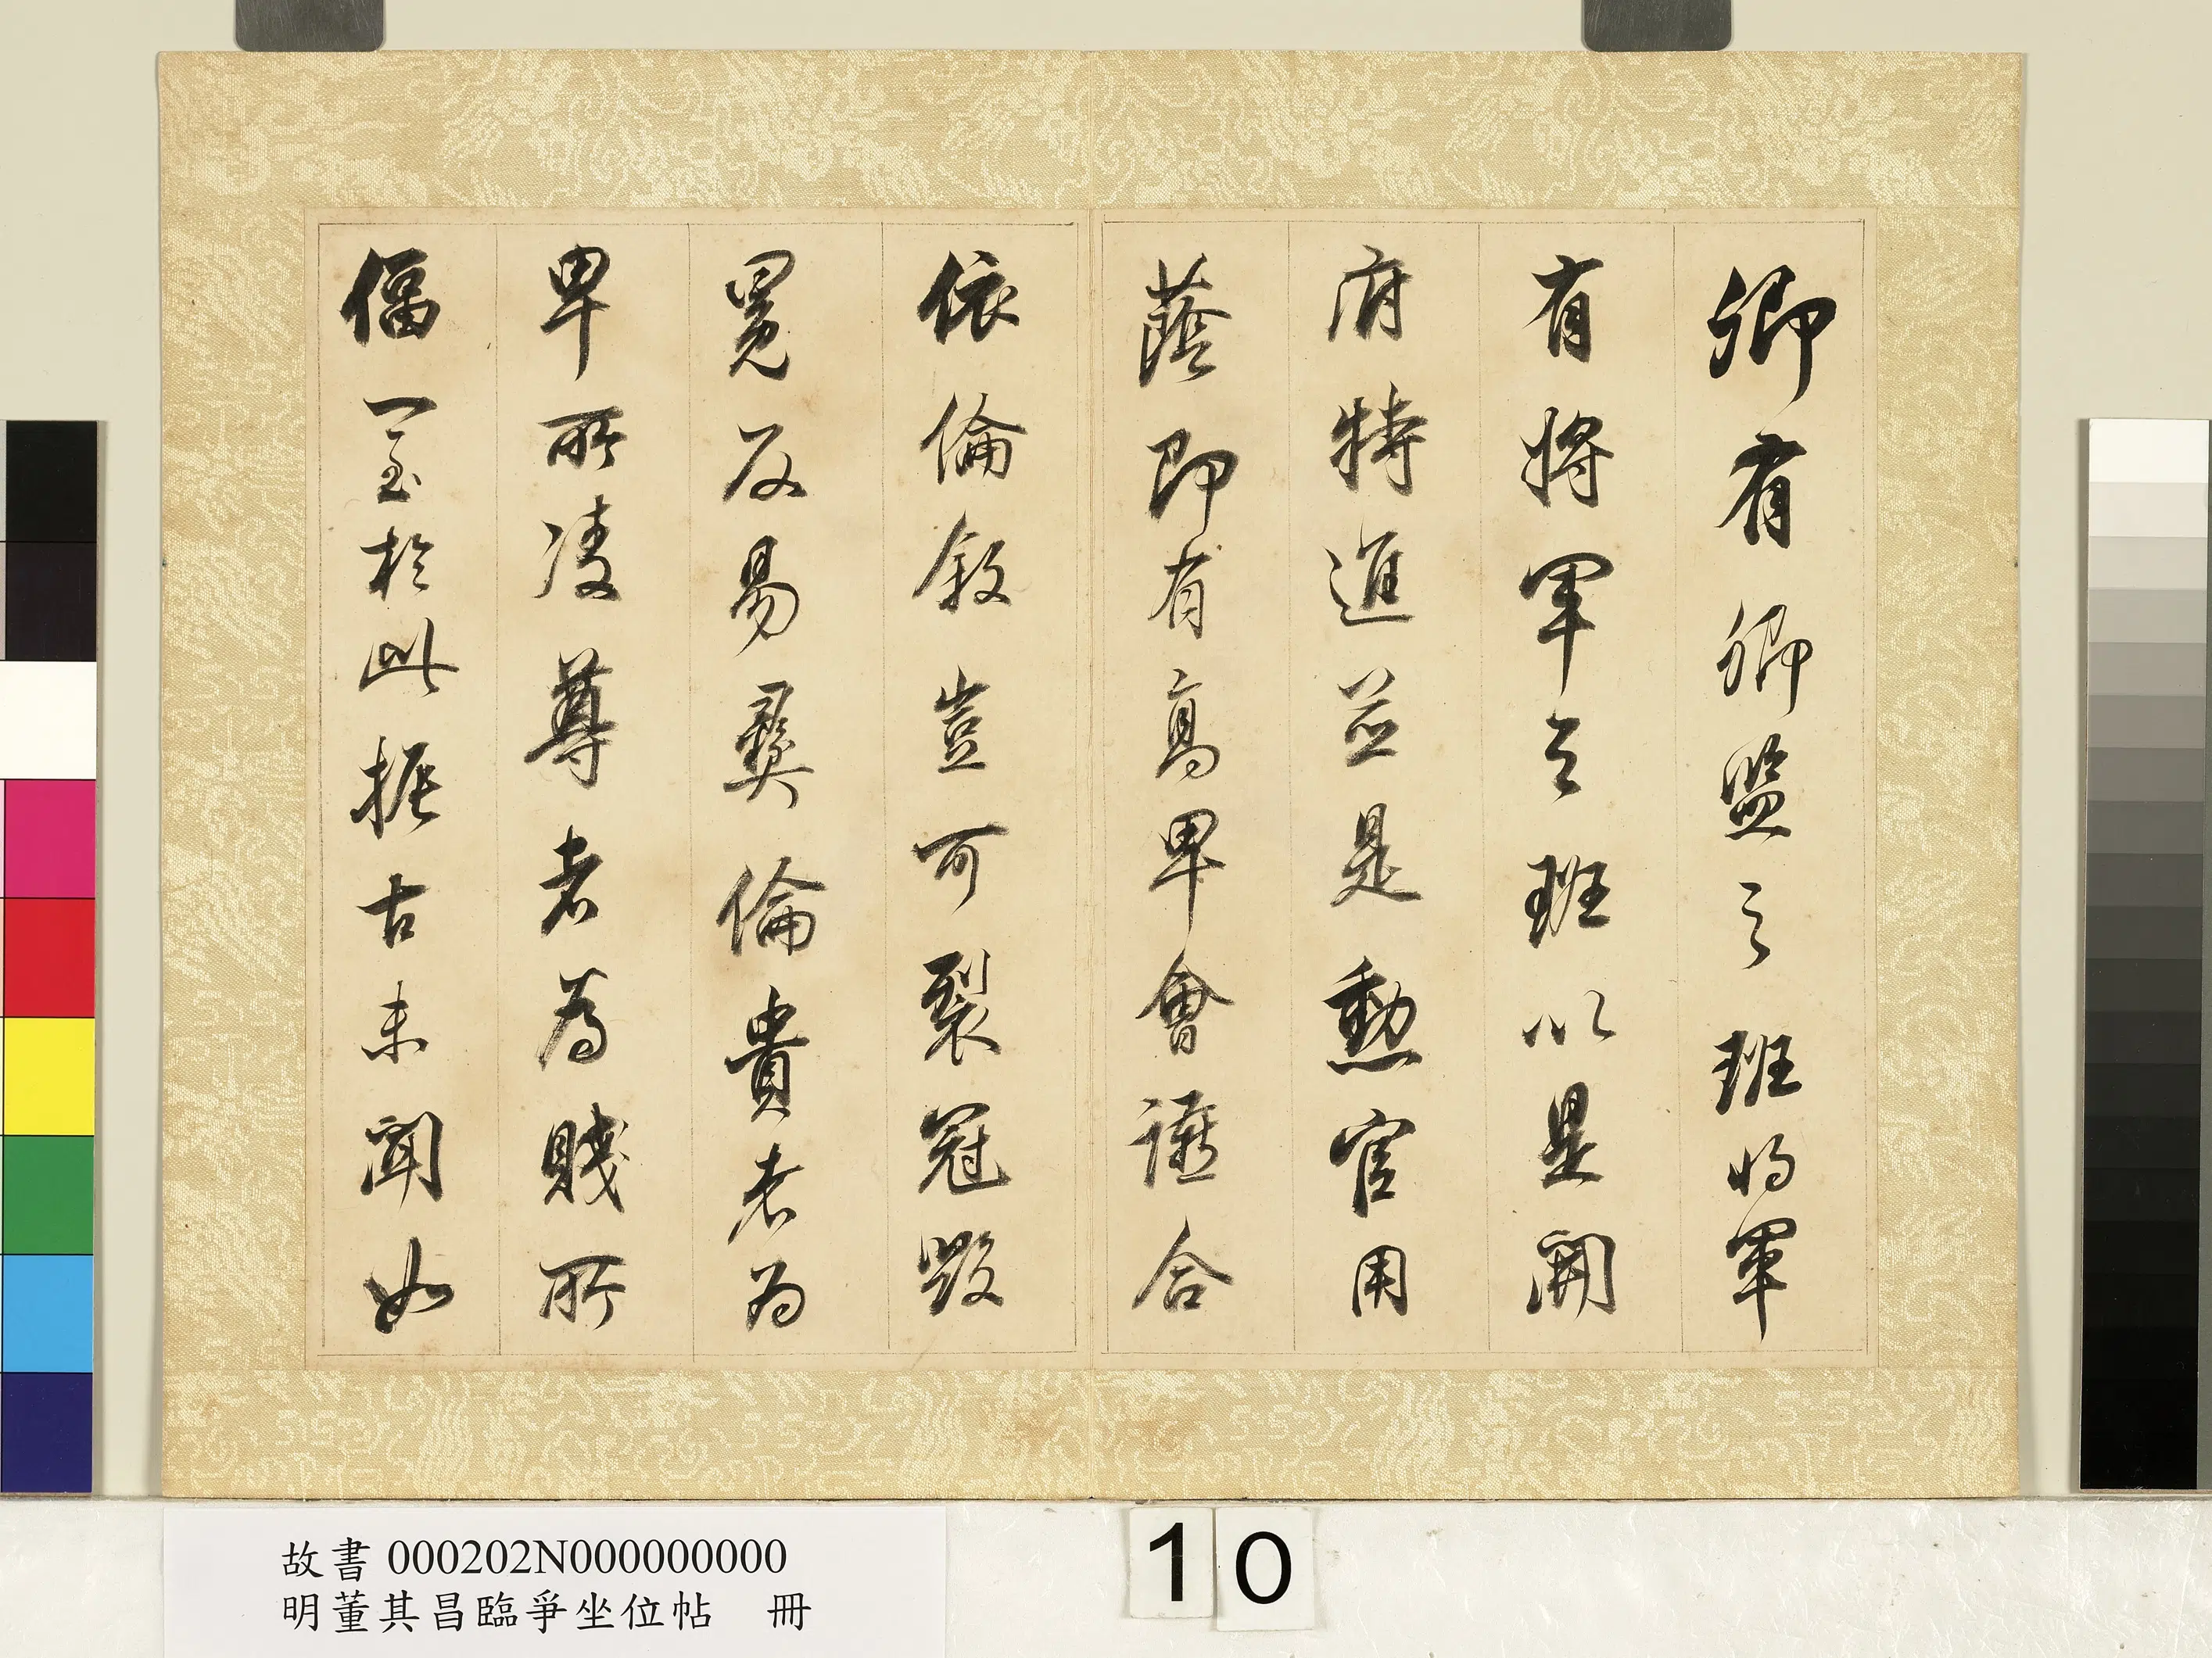 卿有卿監之班將軍
有將軍之班以是開
府特進並是勳官用
蔭即有高卑會讌合
依倫敘豈可裂冠毀
冕反易彝倫貴者為
卑所凌尊者為賤所
偪一至於此振古未聞如
故書 000202N000000000
明董其昌臨爭坐位帖 冊
10